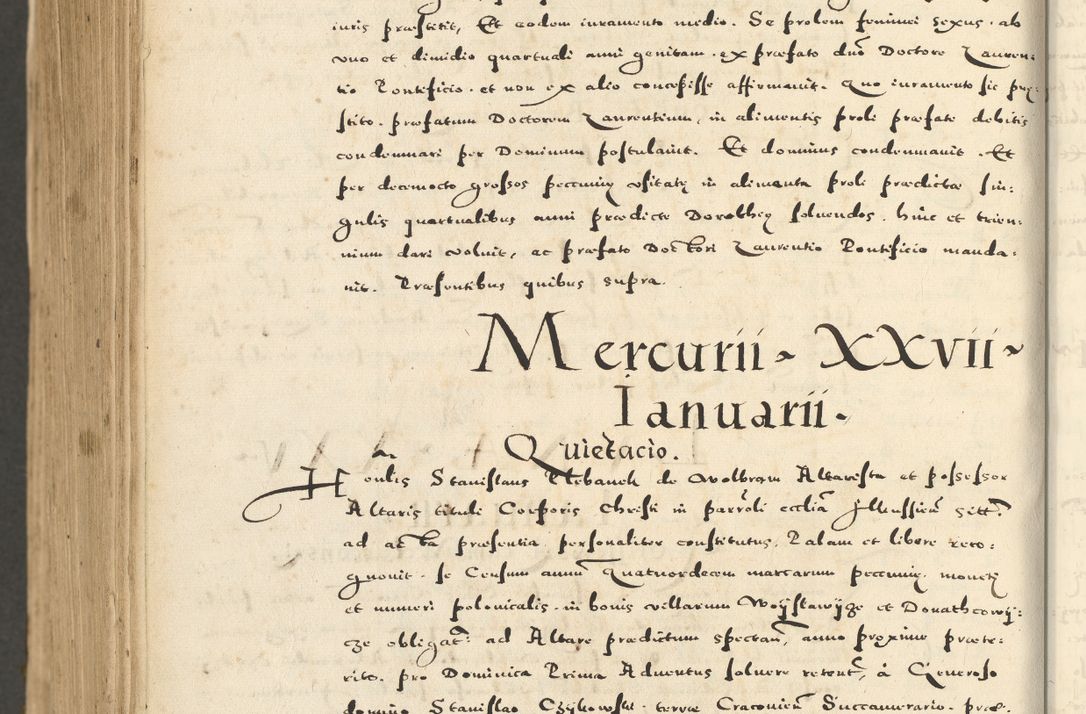 iuris præstitit, Et eodem iuramento medio. Se prolem feminei sexus. ab
vno et dimidio quartuali anni genitam. ex præfato dno Doctore Lauren:
tio Pontificio. et non ex alio concepisse affirmauit. Quo iuramento sic præ:
stito. præfatum Doctorem Laurentium, in alimentis proli præfate debitis
condemnari per Dominum postulauit. Et dominus condemnauit. Et
per decemocto grossos pecuniæ vsitatæ in alimenta proli prædictæ sin:
gulis quartualibus anni prædicte Dorotheæ soluendos. hinc et trien:
nium dari voluit, ac præfato Doctori Laurentio Pontificio manda:
uit. Præsentibus quibus supra.
Mercurii XXvii
Ianuarii.
Quietacio.
Honlis Stanislaus Plebanek de Wolbram Altarista et possessor
Altaris tituli Corporis Christi in parroli ecclia
ad acta præsentia personaliter constitutus. Palam et libere reco:
gnouit. se Censum annu Quatuordecem marcarum pecuniæ. monetæ
et numeri polonicalis. in bonis villarum Woÿslawÿze et Donathcowÿ:
cze obligat: ad Altare prædictum spectan, anno proxime præte:
rito. pro Dominica Prima Aduentus soluere retent, à Generoso
domino Stanislao Czÿkowski. terræ Cracouien Succamerario. præ: